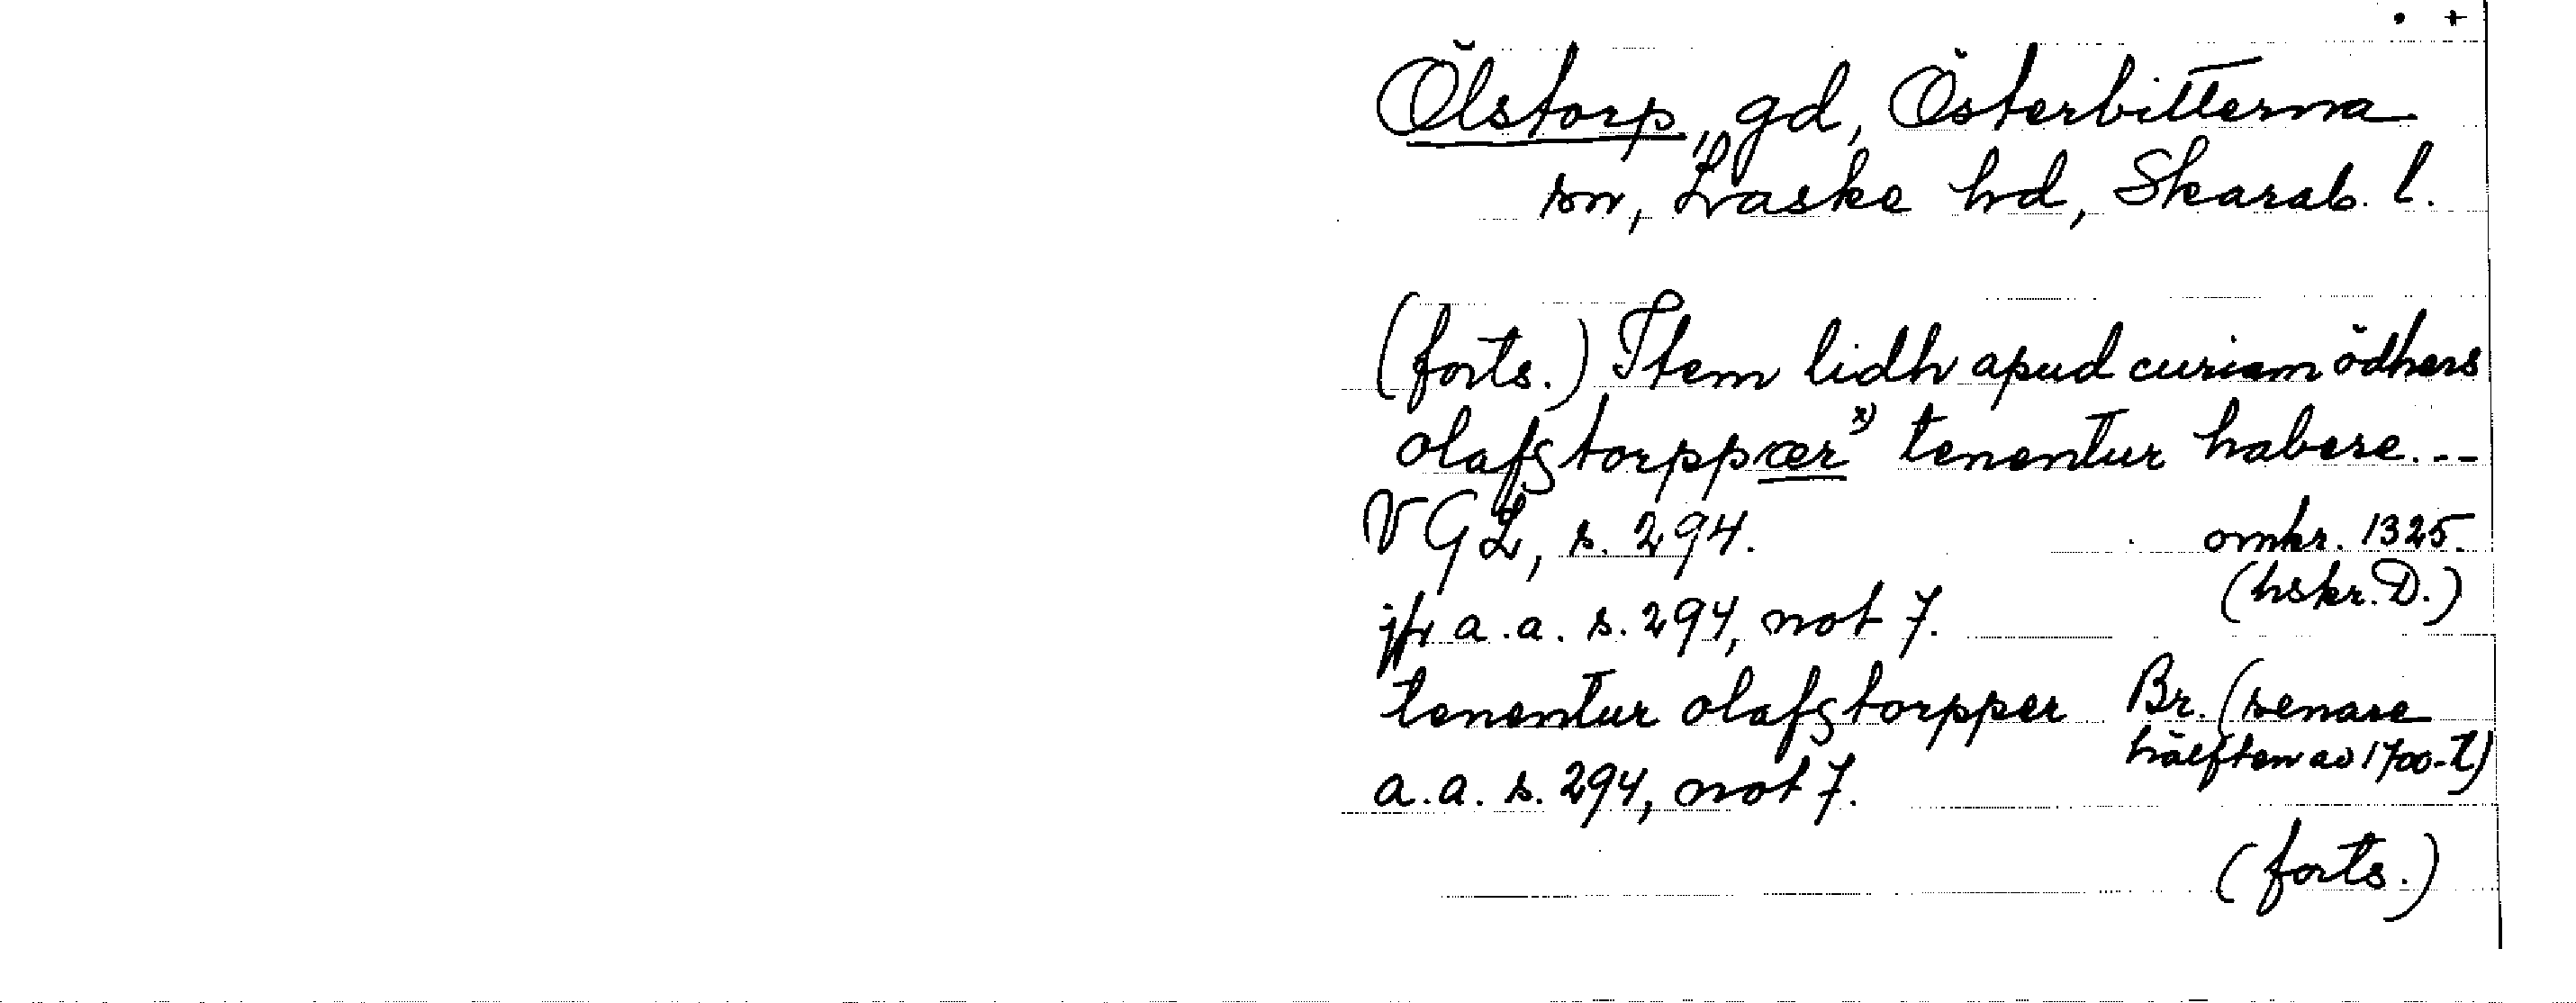 • +
Ölstorp, gd, Österbitterna
sn, Laske hd, Skarab. l.
(forts.) Item lidh apud curiam ödhers
olafstorppær x) tenentur habere...
VGL, s. 294. omkr. 1325.
(hskr. D.)
jfr a.a. s. 294, not 7.
tenentur olafstorpper Br. (senare
hälften av 1700-t)
a.a. s. 294, not 7.
(forts.)